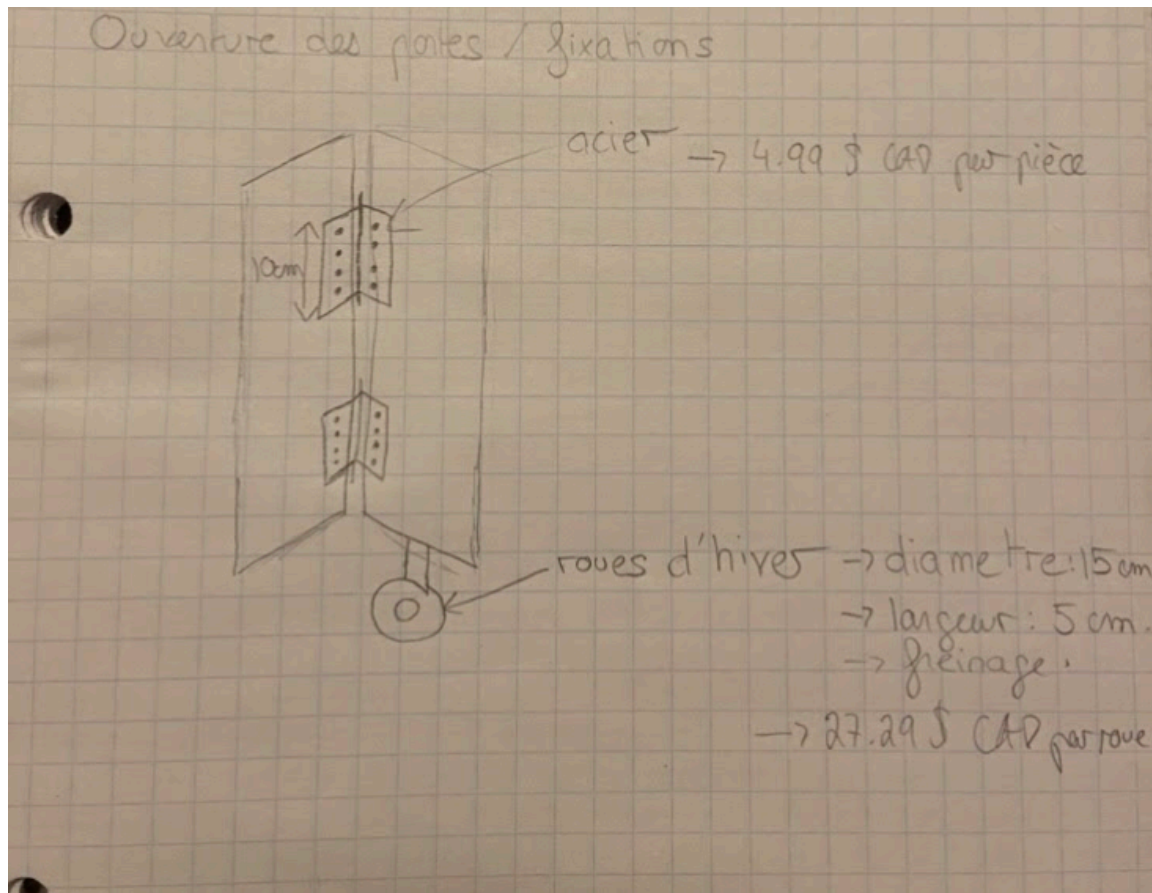 Ouverture des portes / fixations
acier → 4.99 $ CAD par pièce
10cm
roues d'hiver → diametre: 15 cm
→ largeur: 5 cm.
→ freinage.
→ 27.29 $ CAD par roue